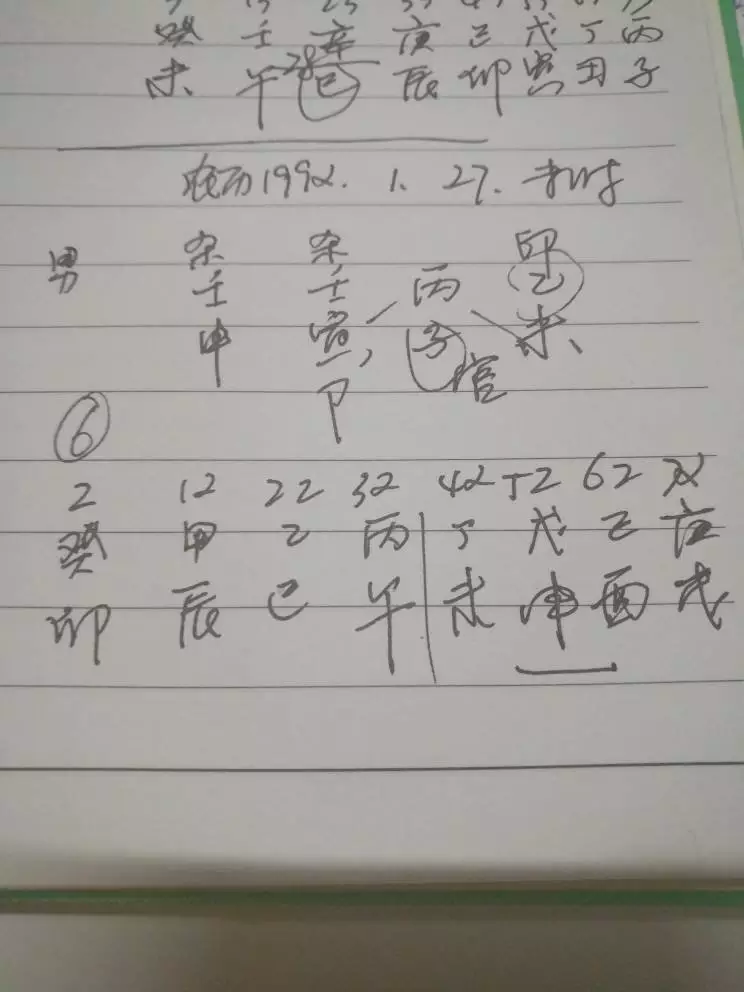 癸 壬 辛 庚 己 戊 丁 丙
未 午 28 巳 辰 卯 寅 丑 子
农历1992.1.27.未时
男 杀 杀 印
壬 壬 丙 乙
申 寅 子 未
官
卩
6
2 12 22 32 42 52 62 72
癸 甲 乙 丙 丁 戊 己 庚
卯 辰 巳 午 未 申 酉 戌